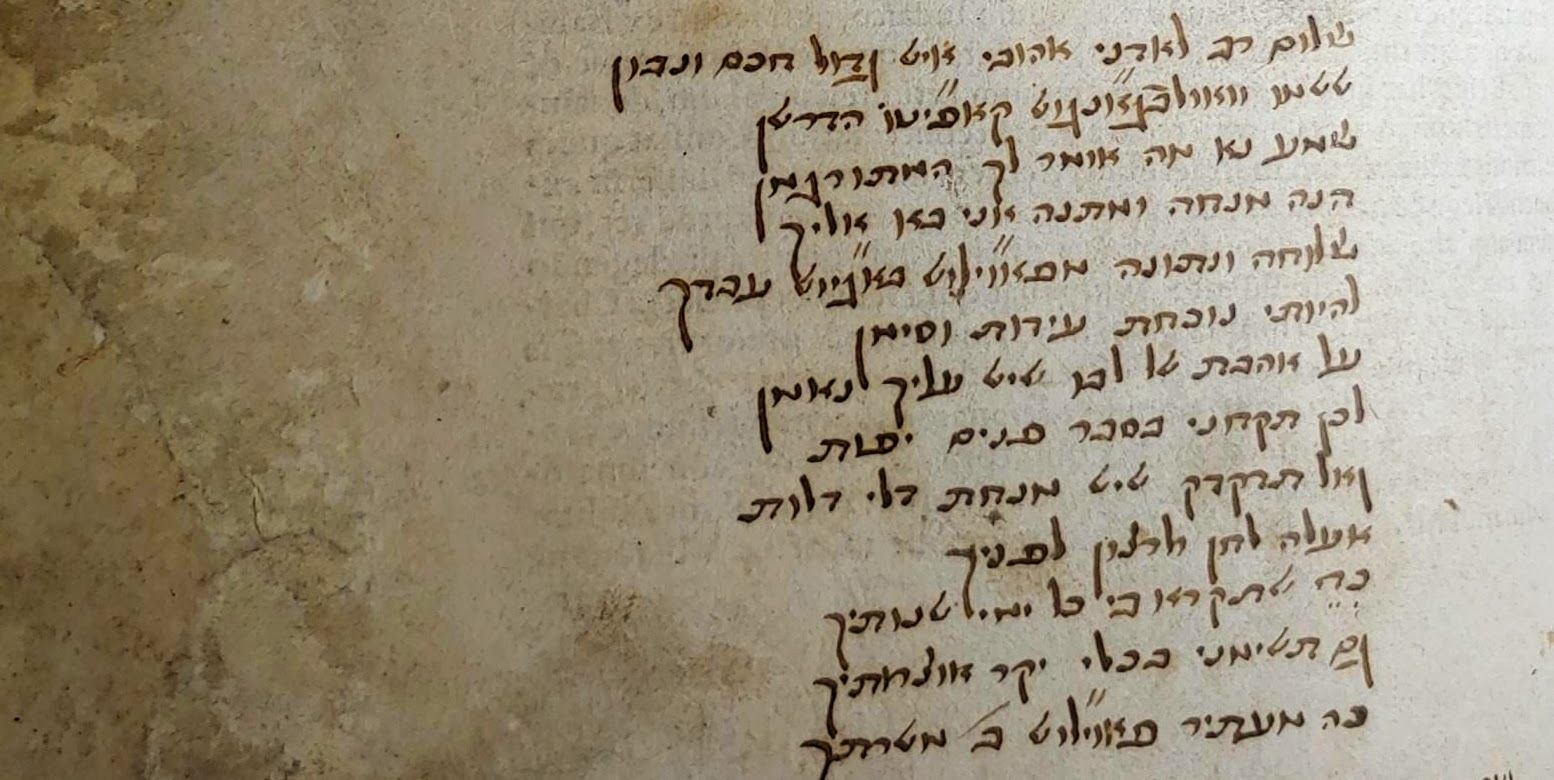 שלום רב לאדני אהובי איש גדול חכם ונבון
ששמו וואולפגאנגוש קאפיטו הדרשן
שמע נא מה אומר לך המתורגמן
הנה מנחה ומתנה אני באו אליך
שלוחה ונתונה מפאוילוש באגיוש עבדך
להיותי נוכחת עידות וסימן
על אהבת של לבו שיש עליך לנאמן
לכן תקחני בסבר פנים יפות
ואל תדקדק שיש מנחת דלי דלות
אעלה לחן ולרצון לפניך
כדי שתקראו בי כל ימי שנותיך
גם תשימני בכלי יקר אוצרתיך
כה מעתיר פאוילוש פ משרתך